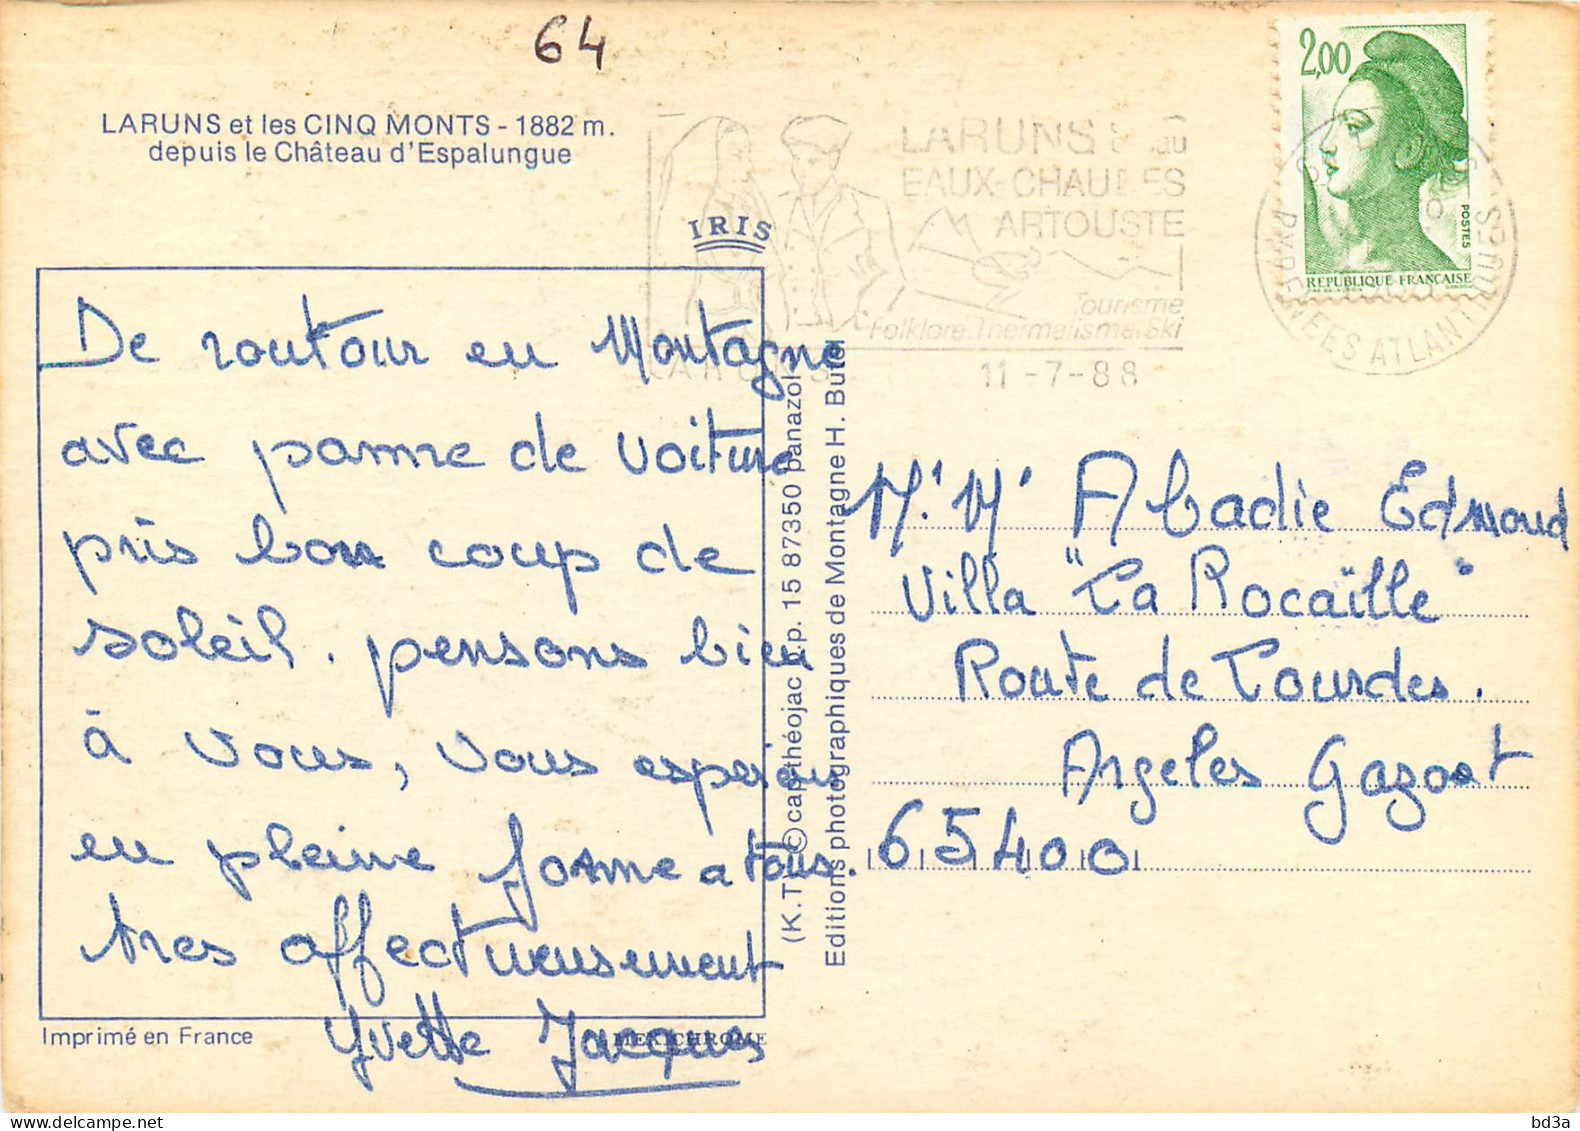 64
LARUNS et les CINQ MONTS - 1882 m.
depuis le Château d'Espalungue
IRIS
De routour en Montagne
avec panne de voiture
pris bon coup de
soleil. pensons bien
à vous, vous esperons
en pleine forme a tous.
tres affectueusement
Yvette Jacques
Imprimé en France
MEXICHROME
(K.T.) © capthéojac b.p. 15 87350 panazol
Editions photographiques de Montagne H. Butel
LARUNS
EAUX-CHAUDES
ARTOUSTE
Tourisme
Folklore.Thermalisme.Ski
LARUNS
11-7-88
2,00
POSTES
REPUBLIQUE FRANÇAISE
PYRENEES ATLANTIQUES
Mr. Mr Abadie Edmond
Villa "La Rocaïlle"
Route de Lourdes.
Argeles Gazost
65400
bd3a